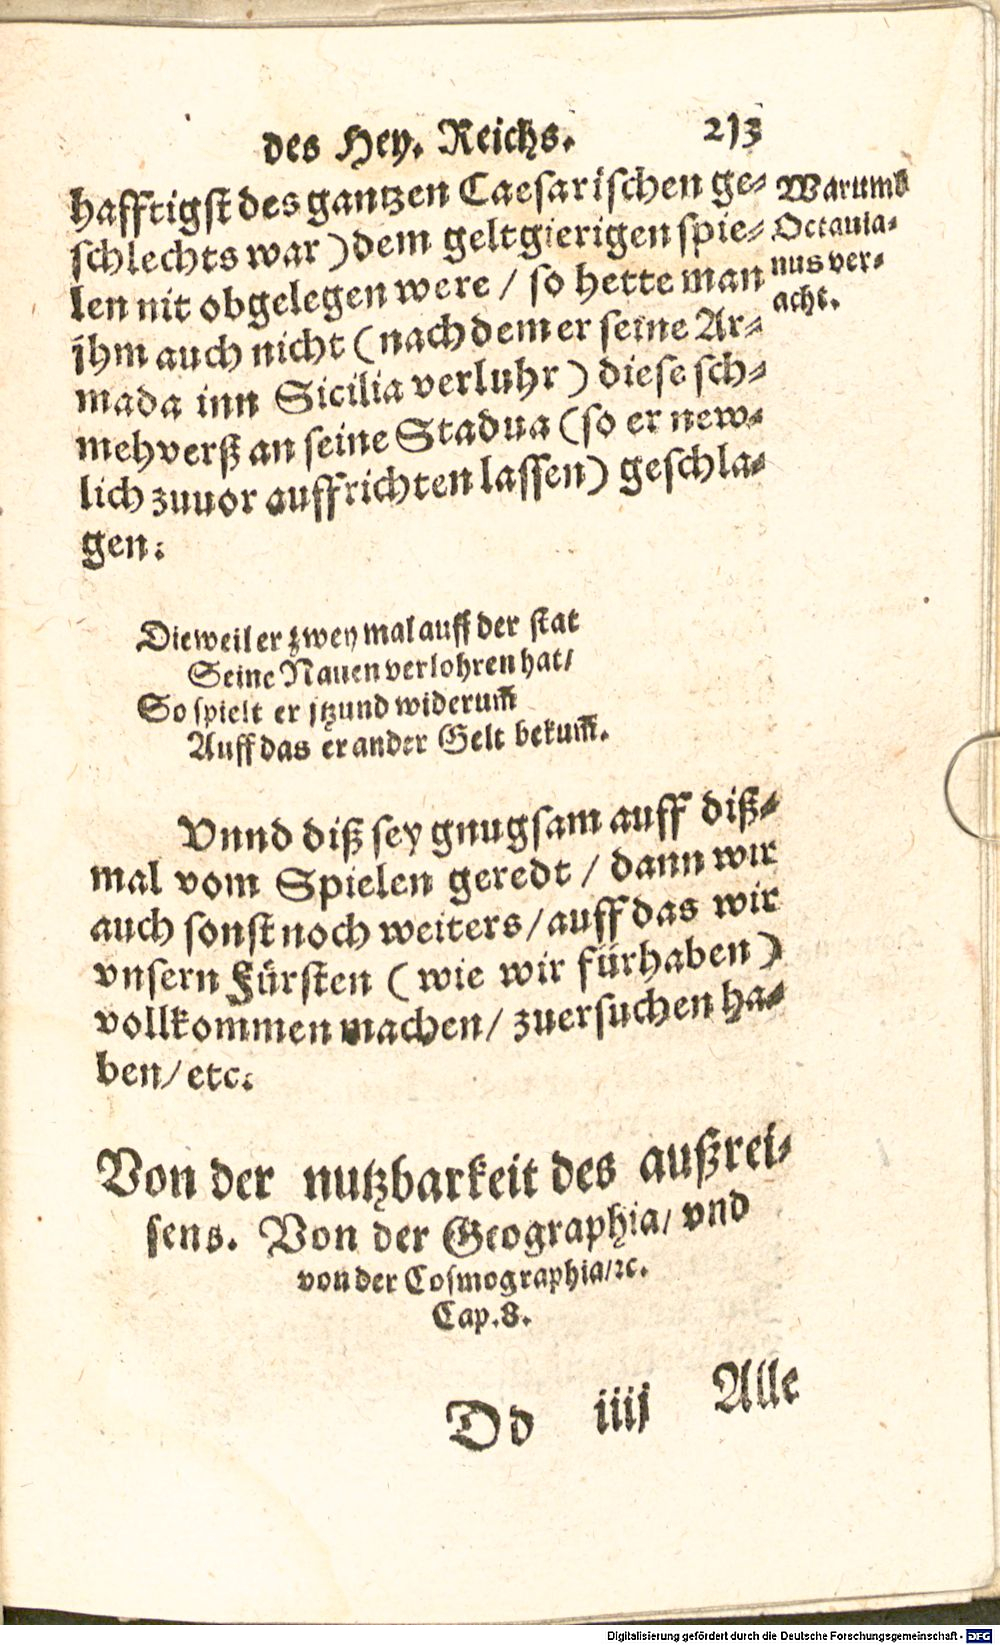 des Hey. Reichs. 213
hafftigst des gantzen Caesarischen ge⸗
schlechts war ) dem geltgierigen spie⸗
len nit obgelegen were / so hette man
ihm auch nicht ( nach dem er seine Ar⸗
mada inn Sicilia verluhr ) diese sch⸗
mehverß an seine Stadua (so er new⸗
lich zuuor auffrichten lassen) geschla⸗
gen:
Warumb
Octauia⸗
nus ver⸗
acht.
Dieweil er zwey mal auff der stat
Seine Nauen verlohren hat/
So spielt er jtzund widerum̃
Auff das er ander Gelt bekum̃.
Vnnd diß sey gnugsam auff diß⸗
mal vom Spielen geredt / dann wir
auch sonst noch weiters / auff das wir
vnsern Fürsten ( wie wir fürhaben )
vollkommen machen / zuersuchen ha⸗
ben / etc.
Von der nutzbarkeit des außrei⸗
sens. Von der Geographia/ vnd
von der Cosmographia/ꝛc.
Cap. 8.
Dd iiij Alle
Digitalisierung gefördert durch die Deutsche Forschungsgemeinschaft - DFG